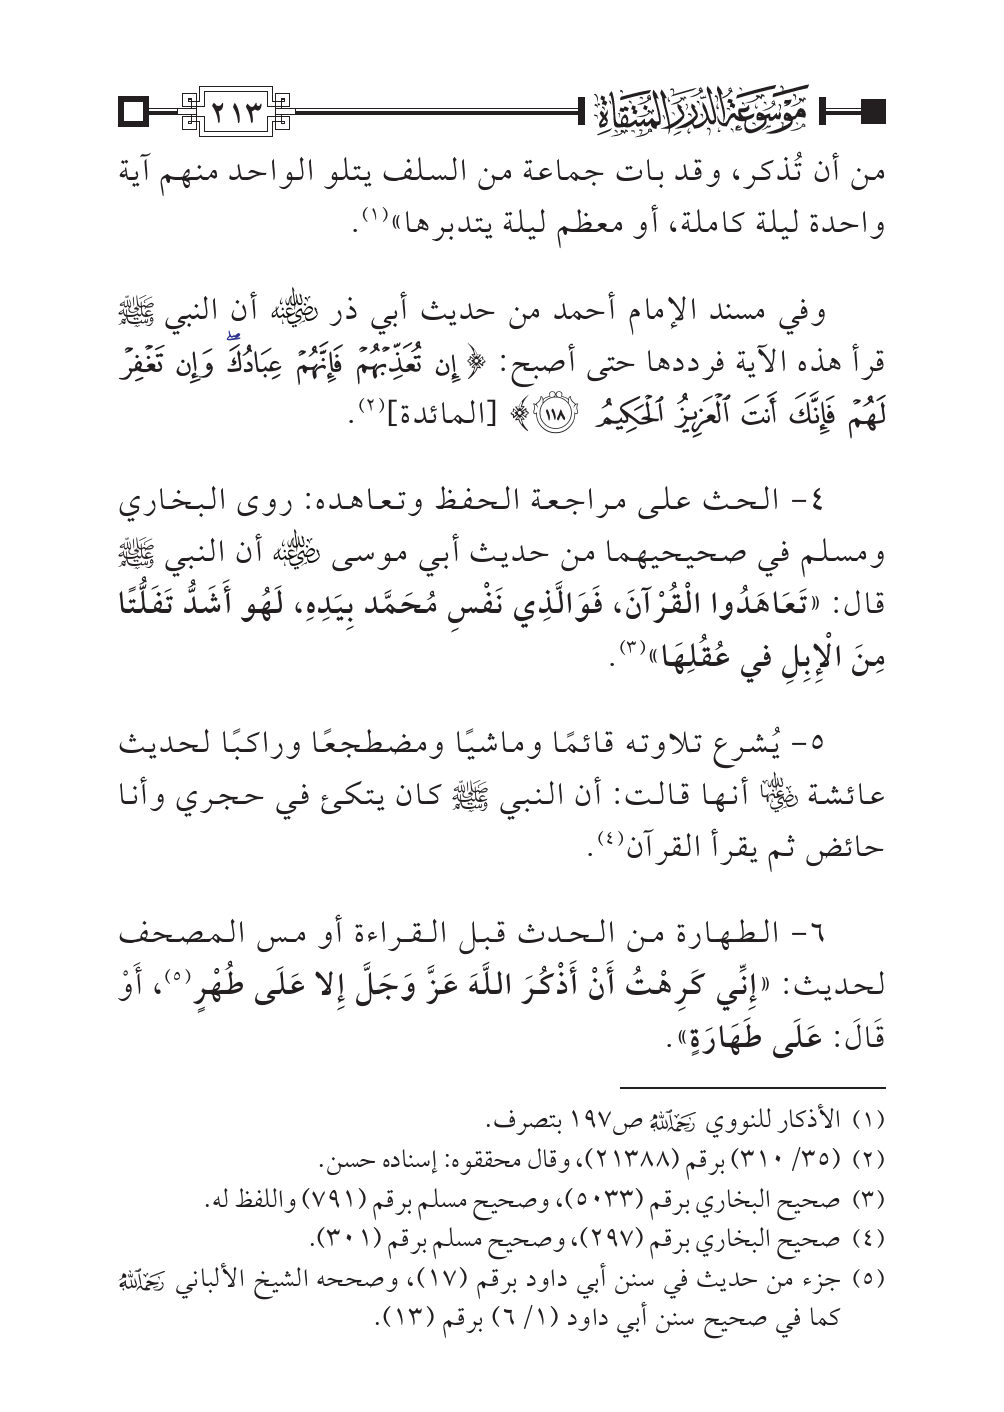 موسوعة الدرر المنتقاة
٢١٣
من أن تُذكر، وقد بات جماعة من السلف يتلو الواحد منهم آية
واحدة ليلة كاملة، أو معظم ليلة يتدبرها»(١).
وفي مسند الإمام أحمد من حديث أبي ذر رضي الله عنه أن النبي ﷺ
قرأ هذه الآية فرددها حتى أصبح: ﴿إِن تُعَذِّبْهُمْ فَإِنَّهُمْ عِبَادُكَ ۖ وَإِن تَغْفِرْ
لَهُمْ فَإِنَّكَ أَنتَ ٱلْعَزِيزُ ٱلْحَكِيمُ ١١٨﴾ [المائدة](٢).
٤- الحث على مراجعة الحفظ وتعاهده: روى البخاري
ومسلم في صحيحيهما من حديث أبي موسى رضي الله عنه أن النبي ﷺ
قال: «تَعَاهَدُوا الْقُرْآنَ، فَوَالَّذِي نَفْسِ مُحَمَّد بِيَدِهِ، لَهُو أَشَدُّ تَفَلُّتًا
مِنَ الْإِبِلِ في عُقُلِهَا»(٣).
٥- يُشرع تلاوته قائمًا وماشيًا ومضطجعًا وراكبًا لحديث
عائشة رضي الله عنها أنها قالت: أن النبي ﷺ كان يتكئ في حجري وأنا
حائض ثم يقرأ القرآن(٤).
٦- الطهارة من الحدث قبل القراءة أو مس المصحف
لحديث: «إِنِّي كَرِهْتُ أَنْ أَذْكُرَ اللَّهَ عَزَّ وَجَلَّ إِلا عَلَى طُهْرٍ(٥)، أَوْ
قَالَ: عَلَى طَهَارَةٍ».
(١) الأذكار للنووي رحمه الله ص١٩٧ بتصرف.
(٢) (٣٥/ ٣١٠) برقم (٢١٣٨٨)، وقال محققوه: إسناده حسن.
(٣) صحيح البخاري برقم (٥٠٣٣)، وصحيح مسلم برقم (٧٩١) واللفظ له.
(٤) صحيح البخاري برقم (٢٩٧)، وصحيح مسلم برقم (٣٠١).
(٥) جزء من حديث في سنن أبي داود برقم (١٧)، وصححه الشيخ الألباني رحمه الله
كما في صحيح سنن أبي داود (١/ ٦) برقم (١٣).